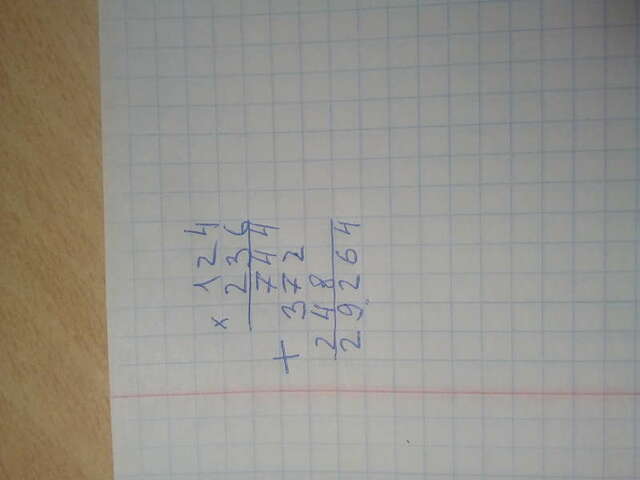 124
× 236
744
+ 372
248
29264